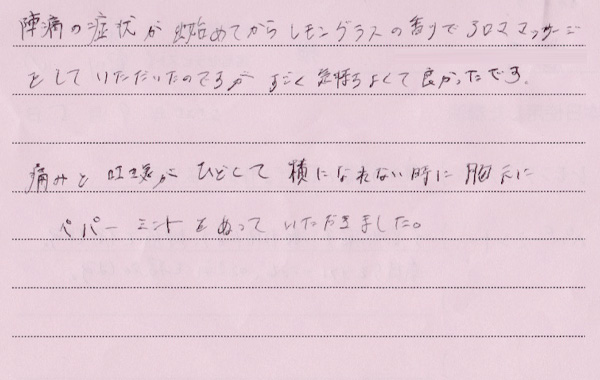 陣痛の症状が出始めてからレモングラスの香りでアロママッサージ
をしていただいたのですが すごく気持ちよくて良かったです。
痛みと吐き気が ひどくて 横になれない時に 胸元に
ペパーミントをぬっていただきました。